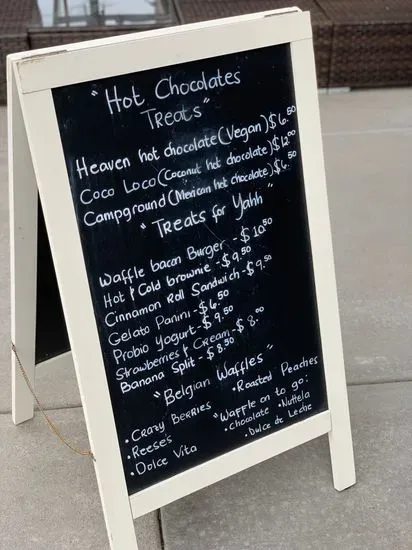 "Hot Chocolates
Treats"
Heaven hot chocolate (Vegan) $6.50
Coco Loco (Coconut hot chocolate) $12.00
Campground (Mexican hot chocolate) $6.50
"Treats for Yahh"
Waffle bacon Burger - $10.50
Hot & Cold brownie - $9.50
Cinnamon Roll Sandwich - $9.50
Gelato Panini - $6.50
Probio Yogurt - $9.50
Strawberries & Cream - $8.00
Banana Split - $8.50
"Belgian Waffles"
• Crazy Berries • Roasted Peaches
• Reeses "Waffle on to go:
• Dolce Vita • chocolate • Nuttela
• Dulce de Leche